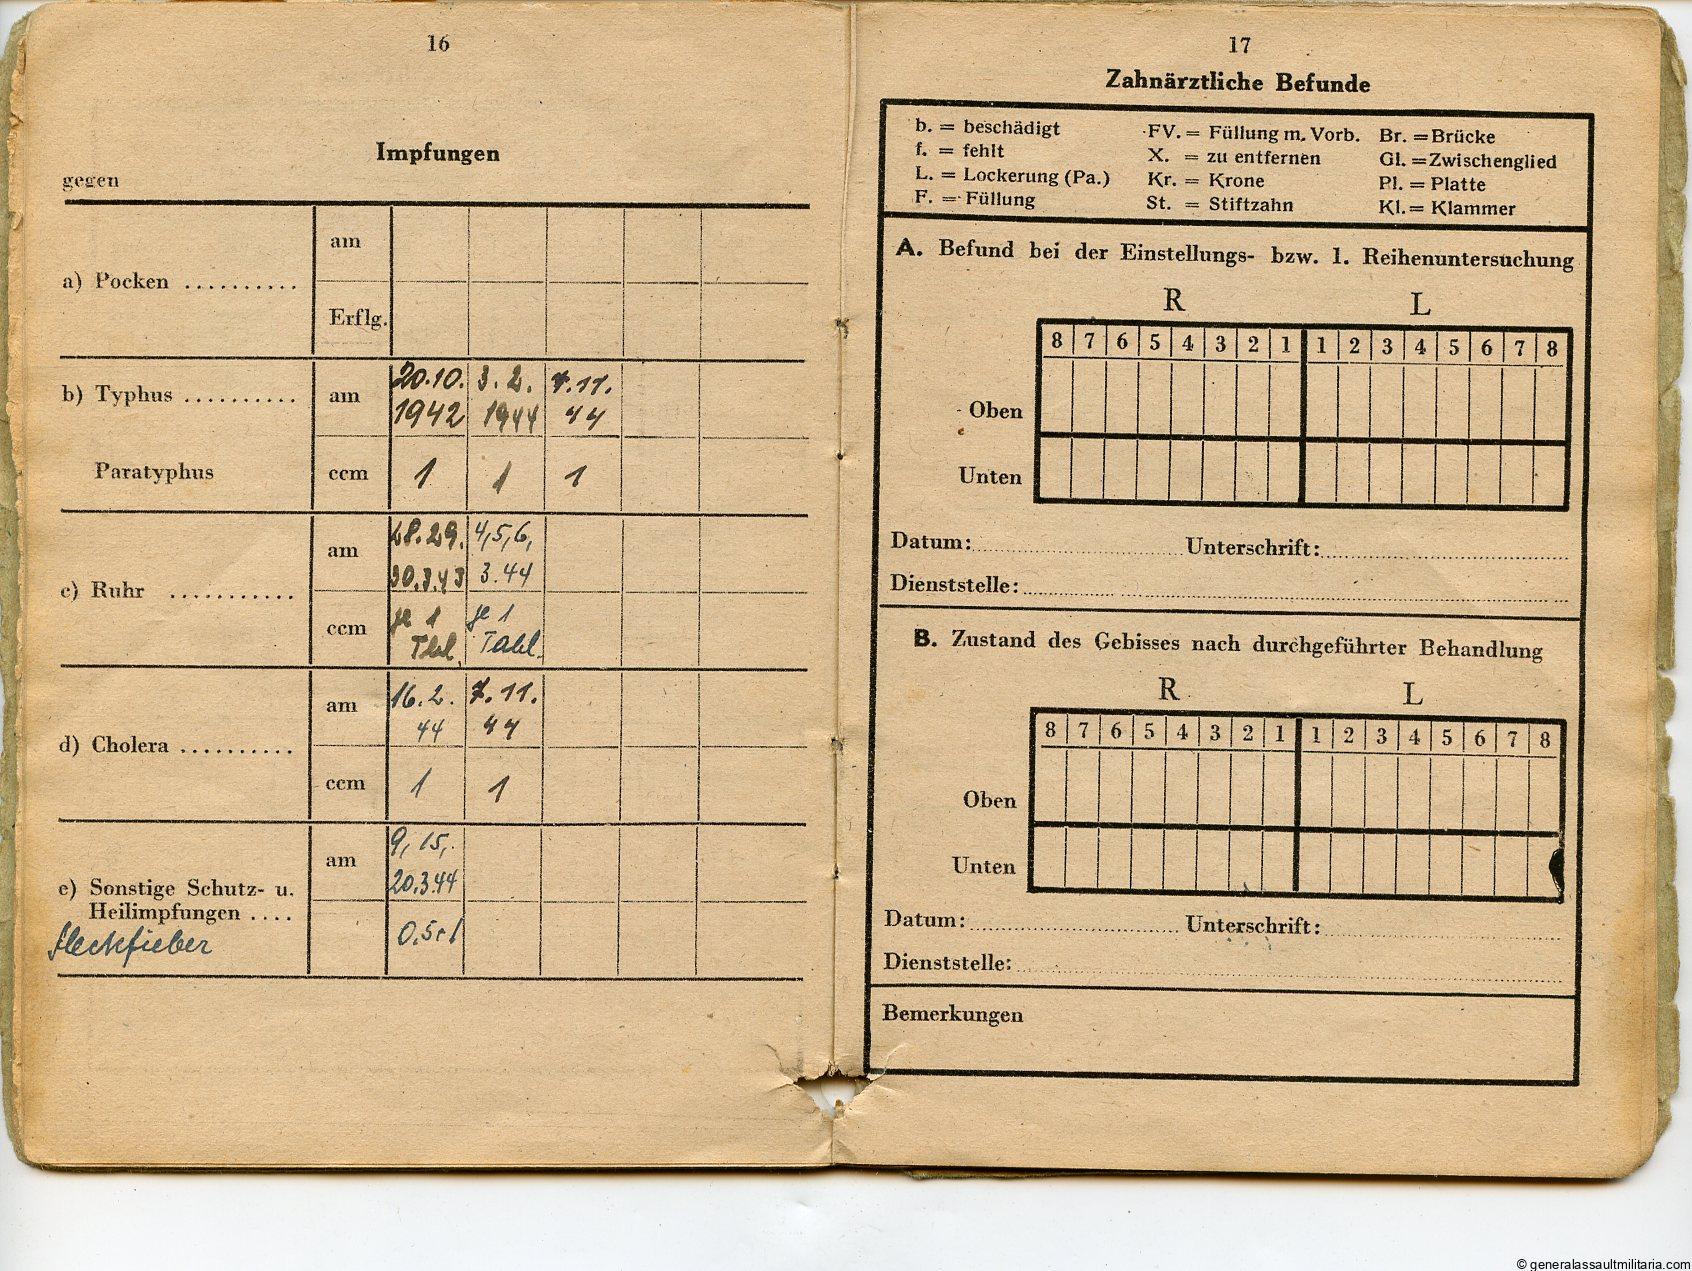 16
Impfungen
gegen
am
a) Pocken ..........
Erflg.
20.10. 3.2. 7.11.
b) Typhus .......... am
1942 1944 44
Paratyphus ccm 1 1 1
28.29. 4,5,6,
am
30.3.43 3.44
c) Ruhr ...........
je 1 je 1
ccm
Tbl. Tabl.
16.2. 7.11.
am
44 44
d) Cholera ..........
ccm 1 1
9, 15,
am
20.3.44
e) Sonstige Schutz- u.
Heilimpfungen ....
Fleckfieber
17
Zahnärztliche Befunde
b. = beschädigt FV. = Füllung m. Vorb. Br. = Brücke
f. = fehlt X. = zu entfernen Gl. = Zwischenglied
L. = Lockerung (Pa.) Kr. = Krone Pl. = Platte
F. = Füllung St. = Stiftzahn Kl. = Klammer
A. Befund bei der Einstellungs- bzw. 1. Reihenuntersuchung
R L
8 7 6 5 4 3 2 1 1 2 3 4 5 6 7 8
Oben
Unten
Datum: Unterschrift:
Dienststelle:
B. Zustand des Gebisses nach durchgeführter Behandlung
R L
8 7 6 5 4 3 2 1 1 2 3 4 5 6 7 8
Oben
Unten
Datum: Unterschrift:
Dienststelle:
Bemerkungen
© generalassaultmilitaria.com